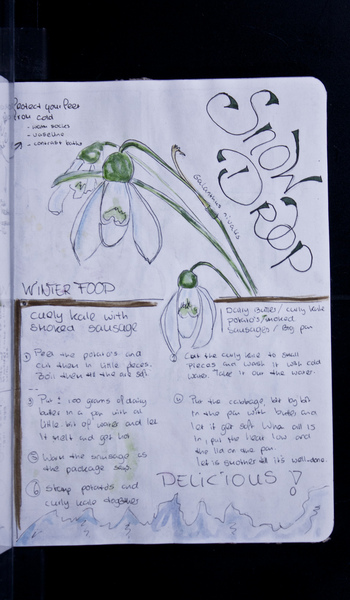 Protect your feet
from cold
- warm socks
- vaseline
- contrast baths
SNOW
DROP
Galanthus nivalis
WINTER FOOD
curly kale with
smoked sausage
Dairy butter / curly kale
potato's / smoked
sausages / Big pan
① Peel the potato's and
cut them in little pieces.
Boil them till they are soft.
② Cut the curly kale to small
pieces and wash it with cold
water. Take it out the water.
③ Put ± 100 grams of dairy
butter in a pan with a
little bit of water and let
it melt and get hot
④ Put the cabbage bit by bit
in the pan with butter and
let it get soft. When all is
in, put the heat low and
the lid on the pan.
let is smother till it's well-done.
⑤ Warm the sausage as
the package says
⑥ Stamp potatoes and
curly kale together
DELICIOUS!